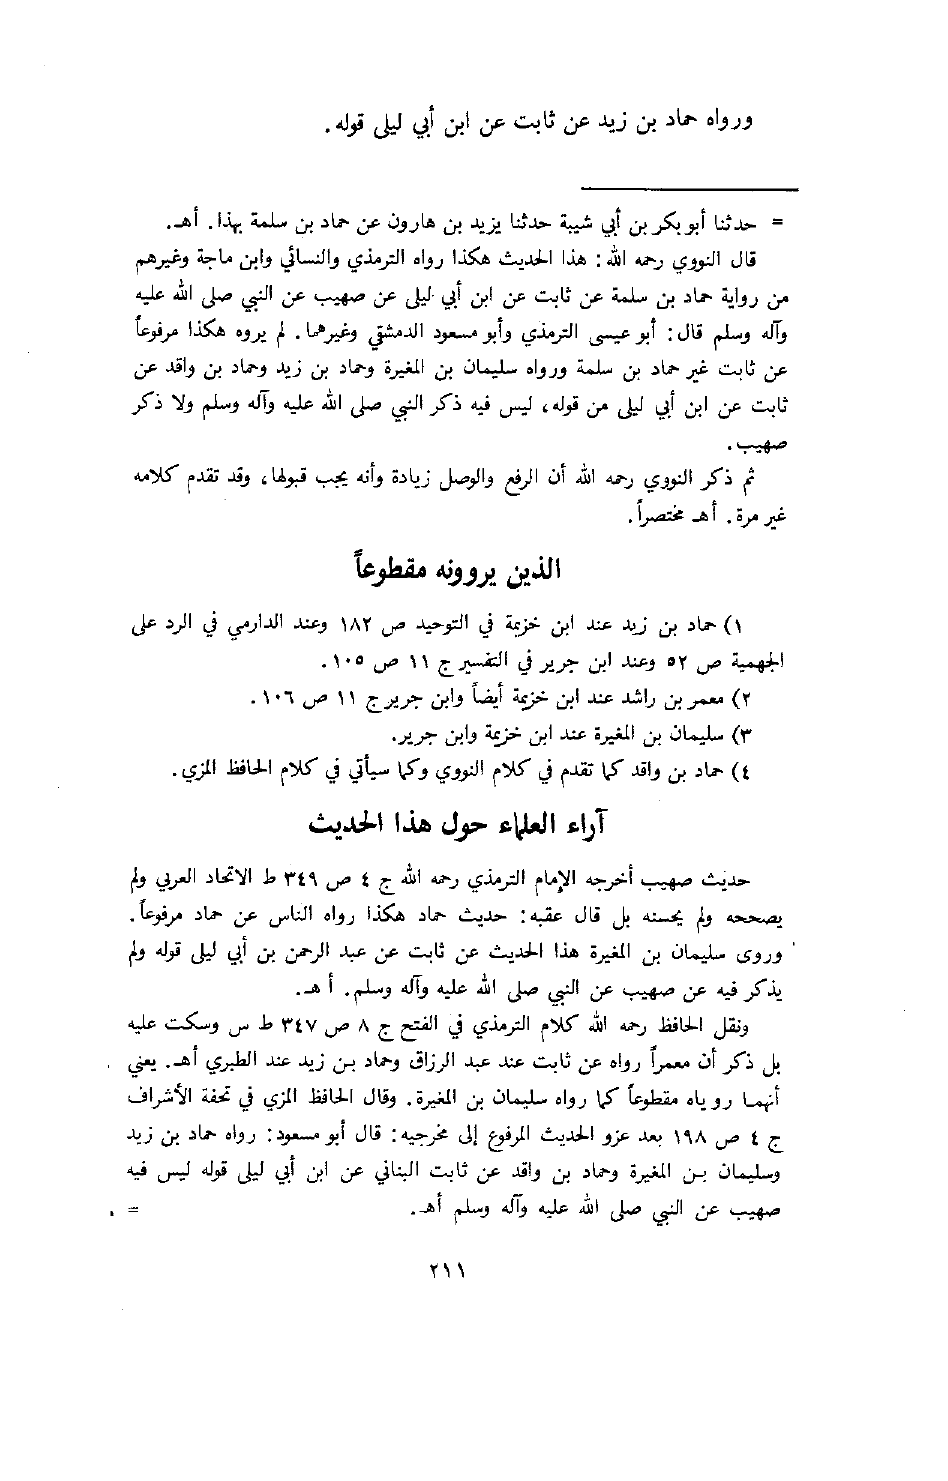 ورواه حماد بن زيد عن ثابت عن ابن أبي ليلى قوله.
= حدثنا أبو بكر بن أبي شيبة حدثنا يزيد بن هارون عن حماد بن سلمة بهذا. أهـ.
قال النووي رحمه الله: هذا الحديث هكذا رواه الترمذي والنسائي وابن ماجة وغيرهم
من رواية حماد بن سلمة عن ثابت عن ابن أبي ليلى عن صهيب عن النبي صلى الله عليه
وآله وسلم قال: أبو عيسى الترمذي وأبو مسعود الدمشقي وغيرهما. لم يروه هكذا مرفوعاً
عن ثابت غير حماد بن سلمة ورواه سليمان بن المغيرة وحماد بن زيد وحماد بن واقد عن
ثابت عن ابن أبي ليلى من قوله، ليس فيه ذكر النبي صلى الله عليه وآله وسلم ولا ذكر
صهيب.
ثم ذكر النووي رحمه الله أن الرفع والوصل زيادة وأنه يجب قبولها، وقد تقدم كلامه
غير مرة. أهـ مختصراً.
الذين يروونه مقطوعاً
١) حماد بن زيد عند ابن خزيمة في التوحيد ص ١٨٢ وعند الدارمي في الرد على
الجهمية ص ٥٢ وعند ابن جرير في التفسير ج ١١ ص ١٠٥.
٢) معمر بن راشد عند ابن خزيمة أيضاً وابن جرير ج ١١ ص ١٠٦.
٣) سليمان بن المغيرة عند ابن خزيمة وابن جرير.
٤) حماد بن واقد كما تقدم في كلام النووي وكما سيأتي في كلام الحافظ المزي.
آراء العلماء حول هذا الحديث
حديث صهيب أخرجه الإمام الترمذي رحمه الله ج ٤ ص ٣٤٩ ط الاتحاد العربي ولم
يصححه ولم يحسنه بل قال عقبه: حديث حماد هكذا رواه الناس عن حماد مرفوعاً.
وروى سليمان بن المغيرة هذا الحديث عن ثابت عن عبد الرحمن بن أبي ليلى قوله ولم
يذكر فيه عن صهيب عن النبي صلى الله عليه وآله وسلم. أ هـ.
ونقل الحافظ رحمه الله كلام الترمذي في الفتح ج ٨ ص ٣٤٧ ط س وسكت عليه
بل ذكر أن معمراً رواه عن ثابت عند عبد الرزاق وحماد بن زيد عند الطبري أهـ. يعني
أنهما روياه مقطوعاً كما رواه سليمان بن المغيرة. وقال الحافظ المزي في تحفة الأشراف
ج ٤ ص ١٩٨ بعد عزو الحديث المرفوع إلى مخرجيه: قال أبو مسعود: رواه حماد بن زيد
وسليمان بن المغيرة وحماد بن واقد عن ثابت البناني عن ابن أبي ليلى قوله ليس فيه
صهيب عن النبي صلى الله عليه وآله وسلم أهـ. =
٢١١